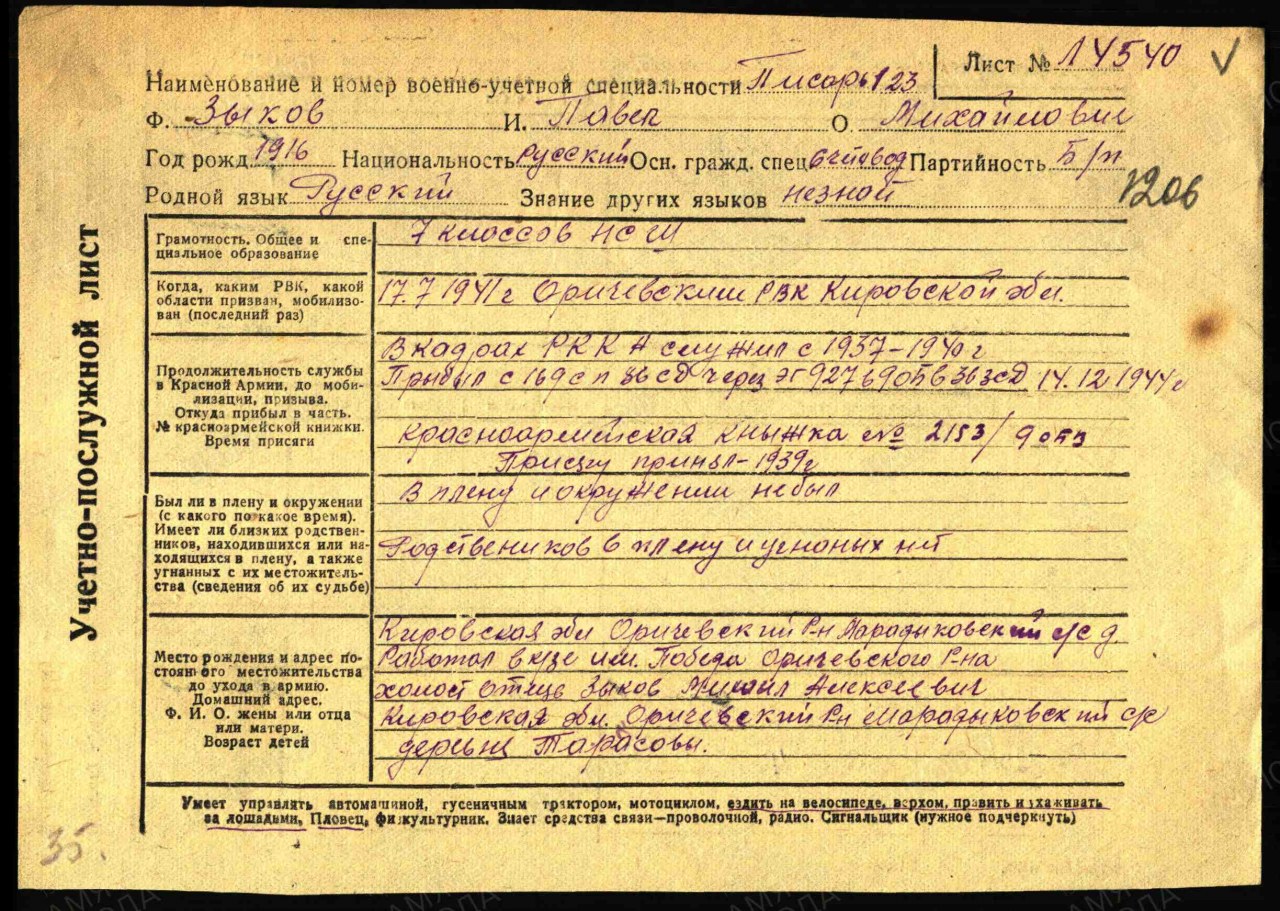 Лист № Л4540
Наименование и номер военно-учетной специальности Писарь 123
Ф. Зыков И. Павел О. Михайлович
Год рожд. 1916 Национальность Русский Осн. гражд. спец. Счетовод Партийность Б/п
1206
Родной язык Русский Знание других языков незной
Учетно-послужной лист
Грамотность. Общее и спе-
циальное образование
7 классов НСШ
Когда, каким РВК, какой
области призван, мобилизо-
ван (последний раз)
17.7 1941 г Оричевским РВК Кировской обл.
Продолжительность службы
в Красной Армии, до моби-
лизации, призыва.
Откуда прибыл в часть.
№ красноармейской книжки.
Время присяги
В кадрах РККА служил с 1937-1940 г
Прибыл с 169 с п 36 сд через ЭГ 927 69 363 сд 14.12 1944 г
Красноармейская книжка № 2153/
Присягу принял - 1939 г
Был ли в плену и окружении
(с какого по какое время).
Имеет ли близких родствен-
ников, находившихся или на-
ходящихся в плену, а также
угнанных с их местожитель-
ства (сведения об их судьбе)
В плену и окружении не был
Родствеников в плену и угнаных нет
Место рождения и адрес по-
стоянного местожительства
до ухода в армию.
Домашний адрес.
Ф. И. О. жены или отца
или матери.
Возраст детей
Кировская обл Оричевский Р-н Марадыковский с/с д
Работал в им. Победа Оричевского Р-на
холост отец Зыков Михаил Алексеевич
Кировская обл. Оричевский Р-н Марадыковский с/с
Тарасовы.
Умеет управлять автомашиной, гусеничным трактором, мотоциклом, ездить на велосипеде, верхом, править и ухаживать
за лошадьми, Пловец, физкультурник. Знает средства связи—проволочной, радио. Сигнальщик (нужное подчеркнуть)
35.